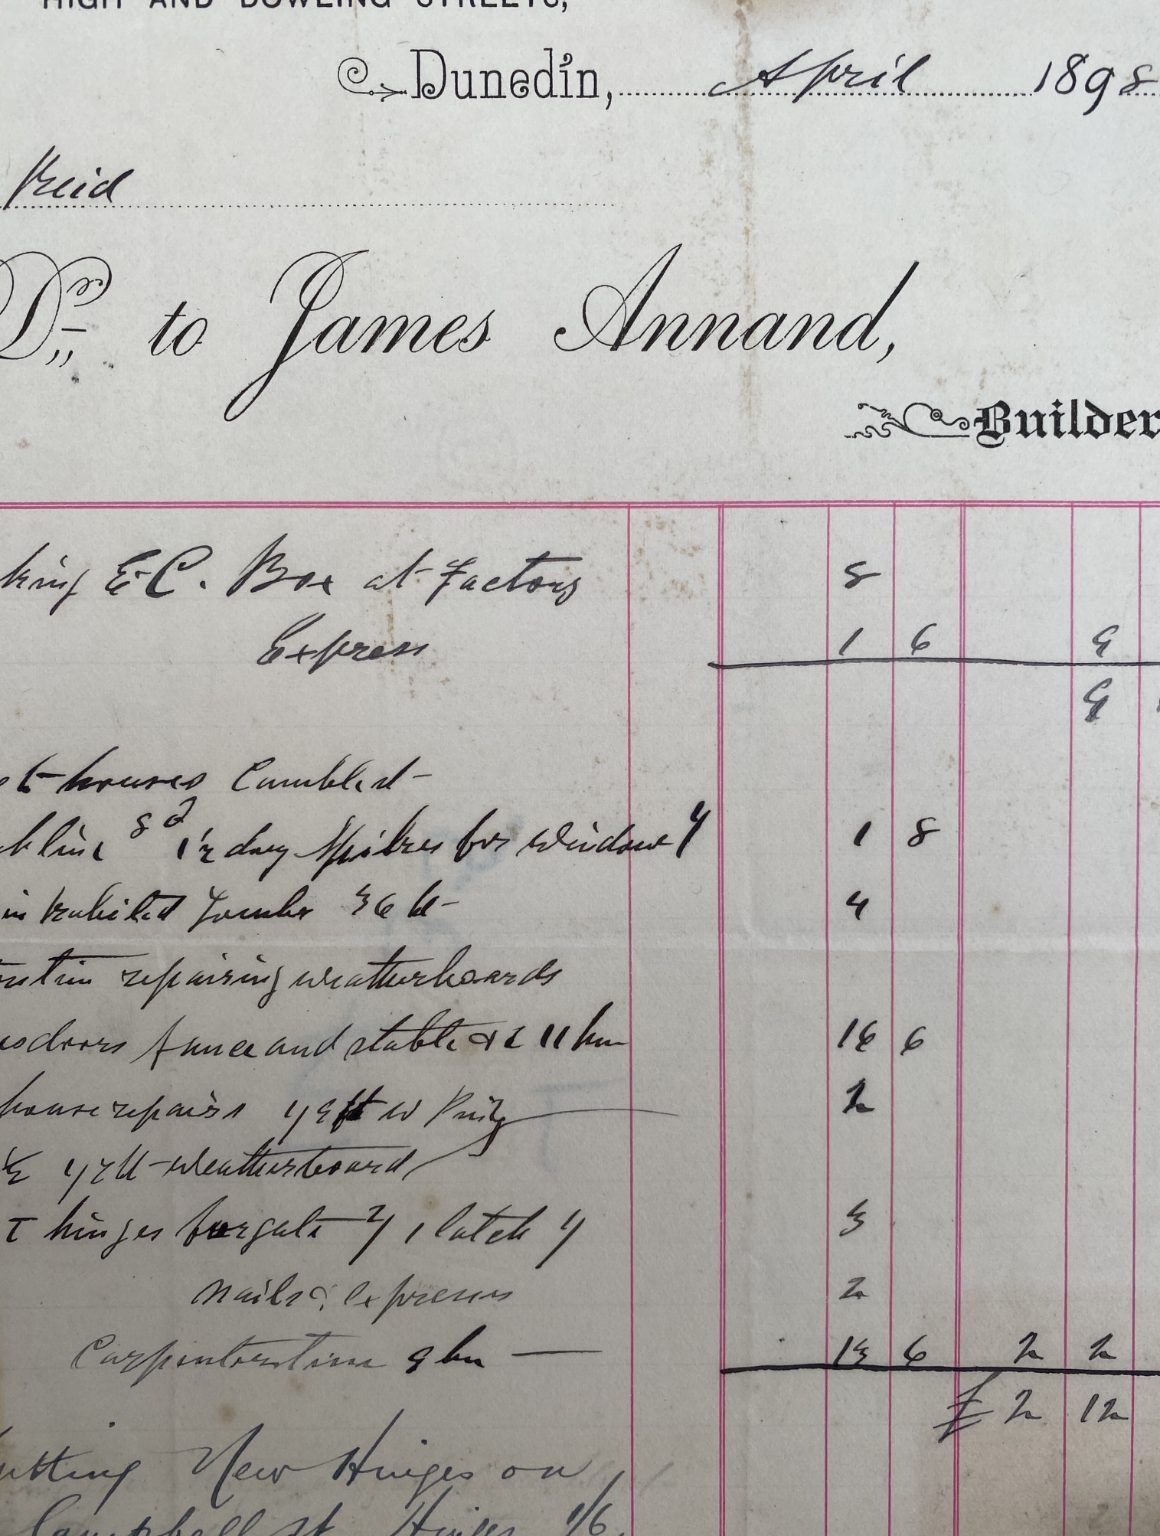 HIGH AND DOWLING STREETS,
Dunedin, April 1898
Reid
Dr. to James Annand,
Builder
king E.C. Box at Factory 8
Express 1 6 9
9
houses
1/2 doz Spikes for window 1 8
in 36 ft 4
repairing weatherboards
doors fence and stable &c 11 hrs 16 6
house repairs 2
weatherboard
T hinges for gate 2/ 1 latch 1/ 3
Nails & expresses 2
Carpenters time 9 hrs — 13 6 2 2
£ 2 12
utting New Hinges on
Campbell st Hinges 1/6.